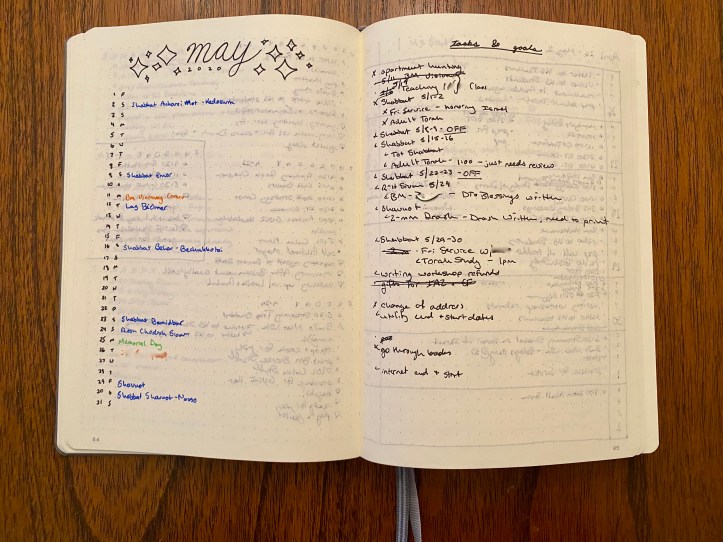 may
2020
1 F
2 S Shabbat Acharei Mot - Kedoshim
3 S
4 M
5 T
6 W
7 T
8 F
9 S Shabbat Emor
10 S
11 M
12 T Lag BaOmer
13 W
14 T
15 F
16 S Shabbat Behar - Bechukotai
17 S
18 M
19 T
20 W
21 T
22 F
23 S Shabbat Bamidbar
24 S Rosh Chodesh Sivan
25 M Memorial Day
26 T
27 W
28 T
29 F Shavuot
30 S Shabbat Shavuot - Nasso
31 S
64
Tasks & goals
x apartment hunting
5/11
Teaching Class
x Shabbat 5/1-2
x Fri Service - honoring Israel
x Adult Torah
Shabbat 5/8-9 - OFF
Shabbat 5/15-16
Tot Shabbat
Adult Torah - 1100 - just needs review
Shabbat 5/22-23 - OFF
5/29
BM - Blessings written
Shavuot
2-min Drash - Drash written, need to print
Shabbat 5/29-30
Fri Service w/
Torah Study - 1pm
writing workshop refunds
gifts for
x change of address
utility end + start dates
go through books
internet end + start
65